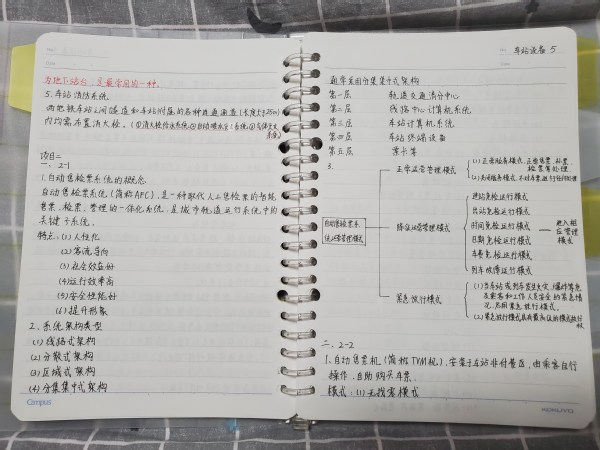 为地下站台,是最常用的一种。
5.车站消防系统。
两地铁车站之间隧道和车站附属的各种通道(长度大于25m)
内均需布置消火栓。(①消火栓给水系统②自动喷水灭火系统③气体灭火
系统)
项目二
一、2-1
1.自动售检票系统的概念
自动售检票系统(简称AFC),是一种取代人工售检票的智能
售票、检票、管理的一体化系统,是城市轨道运行系统中的
关键子系统。
特点:(1)人性化
(2)客流导向
(3)社会效益好
(4)运行效率高
(5)安全性能好
(6)提升形象
2、系统架构类型
(1)线路式架构
(2)分散式架构
(3)区域式架构
(4)分级集中式架构
Campus
No.
Date
车站设备 5
通常采用分级集中式架构
第一层 轨道交通清分中心
第二层 线路中心计算机系统
第三层 车站计算机系统
第四层 车站终端设备
第五层 票卡等
3.
自动售检票系
统运营管理模式
正常运营管理模式
(1)正常服务模式:正常售票、补票、
检票等处理
(2)关闭服务模式:不对车票进行任何处理
降级运营管理模式
进站免检运行模式
出站免检运行模式
时间免检运行模式
日期免检运行模式
车费免检运行模式
列车故障运行模式
进入相
应管理
模式
紧急放行模式
(1)当车站或列车发生火灾、爆炸等危
及乘客和工作人员安全的紧急情
况,启用紧急放行模式。
(2)紧急放行模式具有最高级的模式执行
权
二、2-2
1、自动售票机(简称TVM机),安装于车站非付费区,由乘客自行
操作、自助购买车票。
模式:(1)无找零模式
KOKUYO